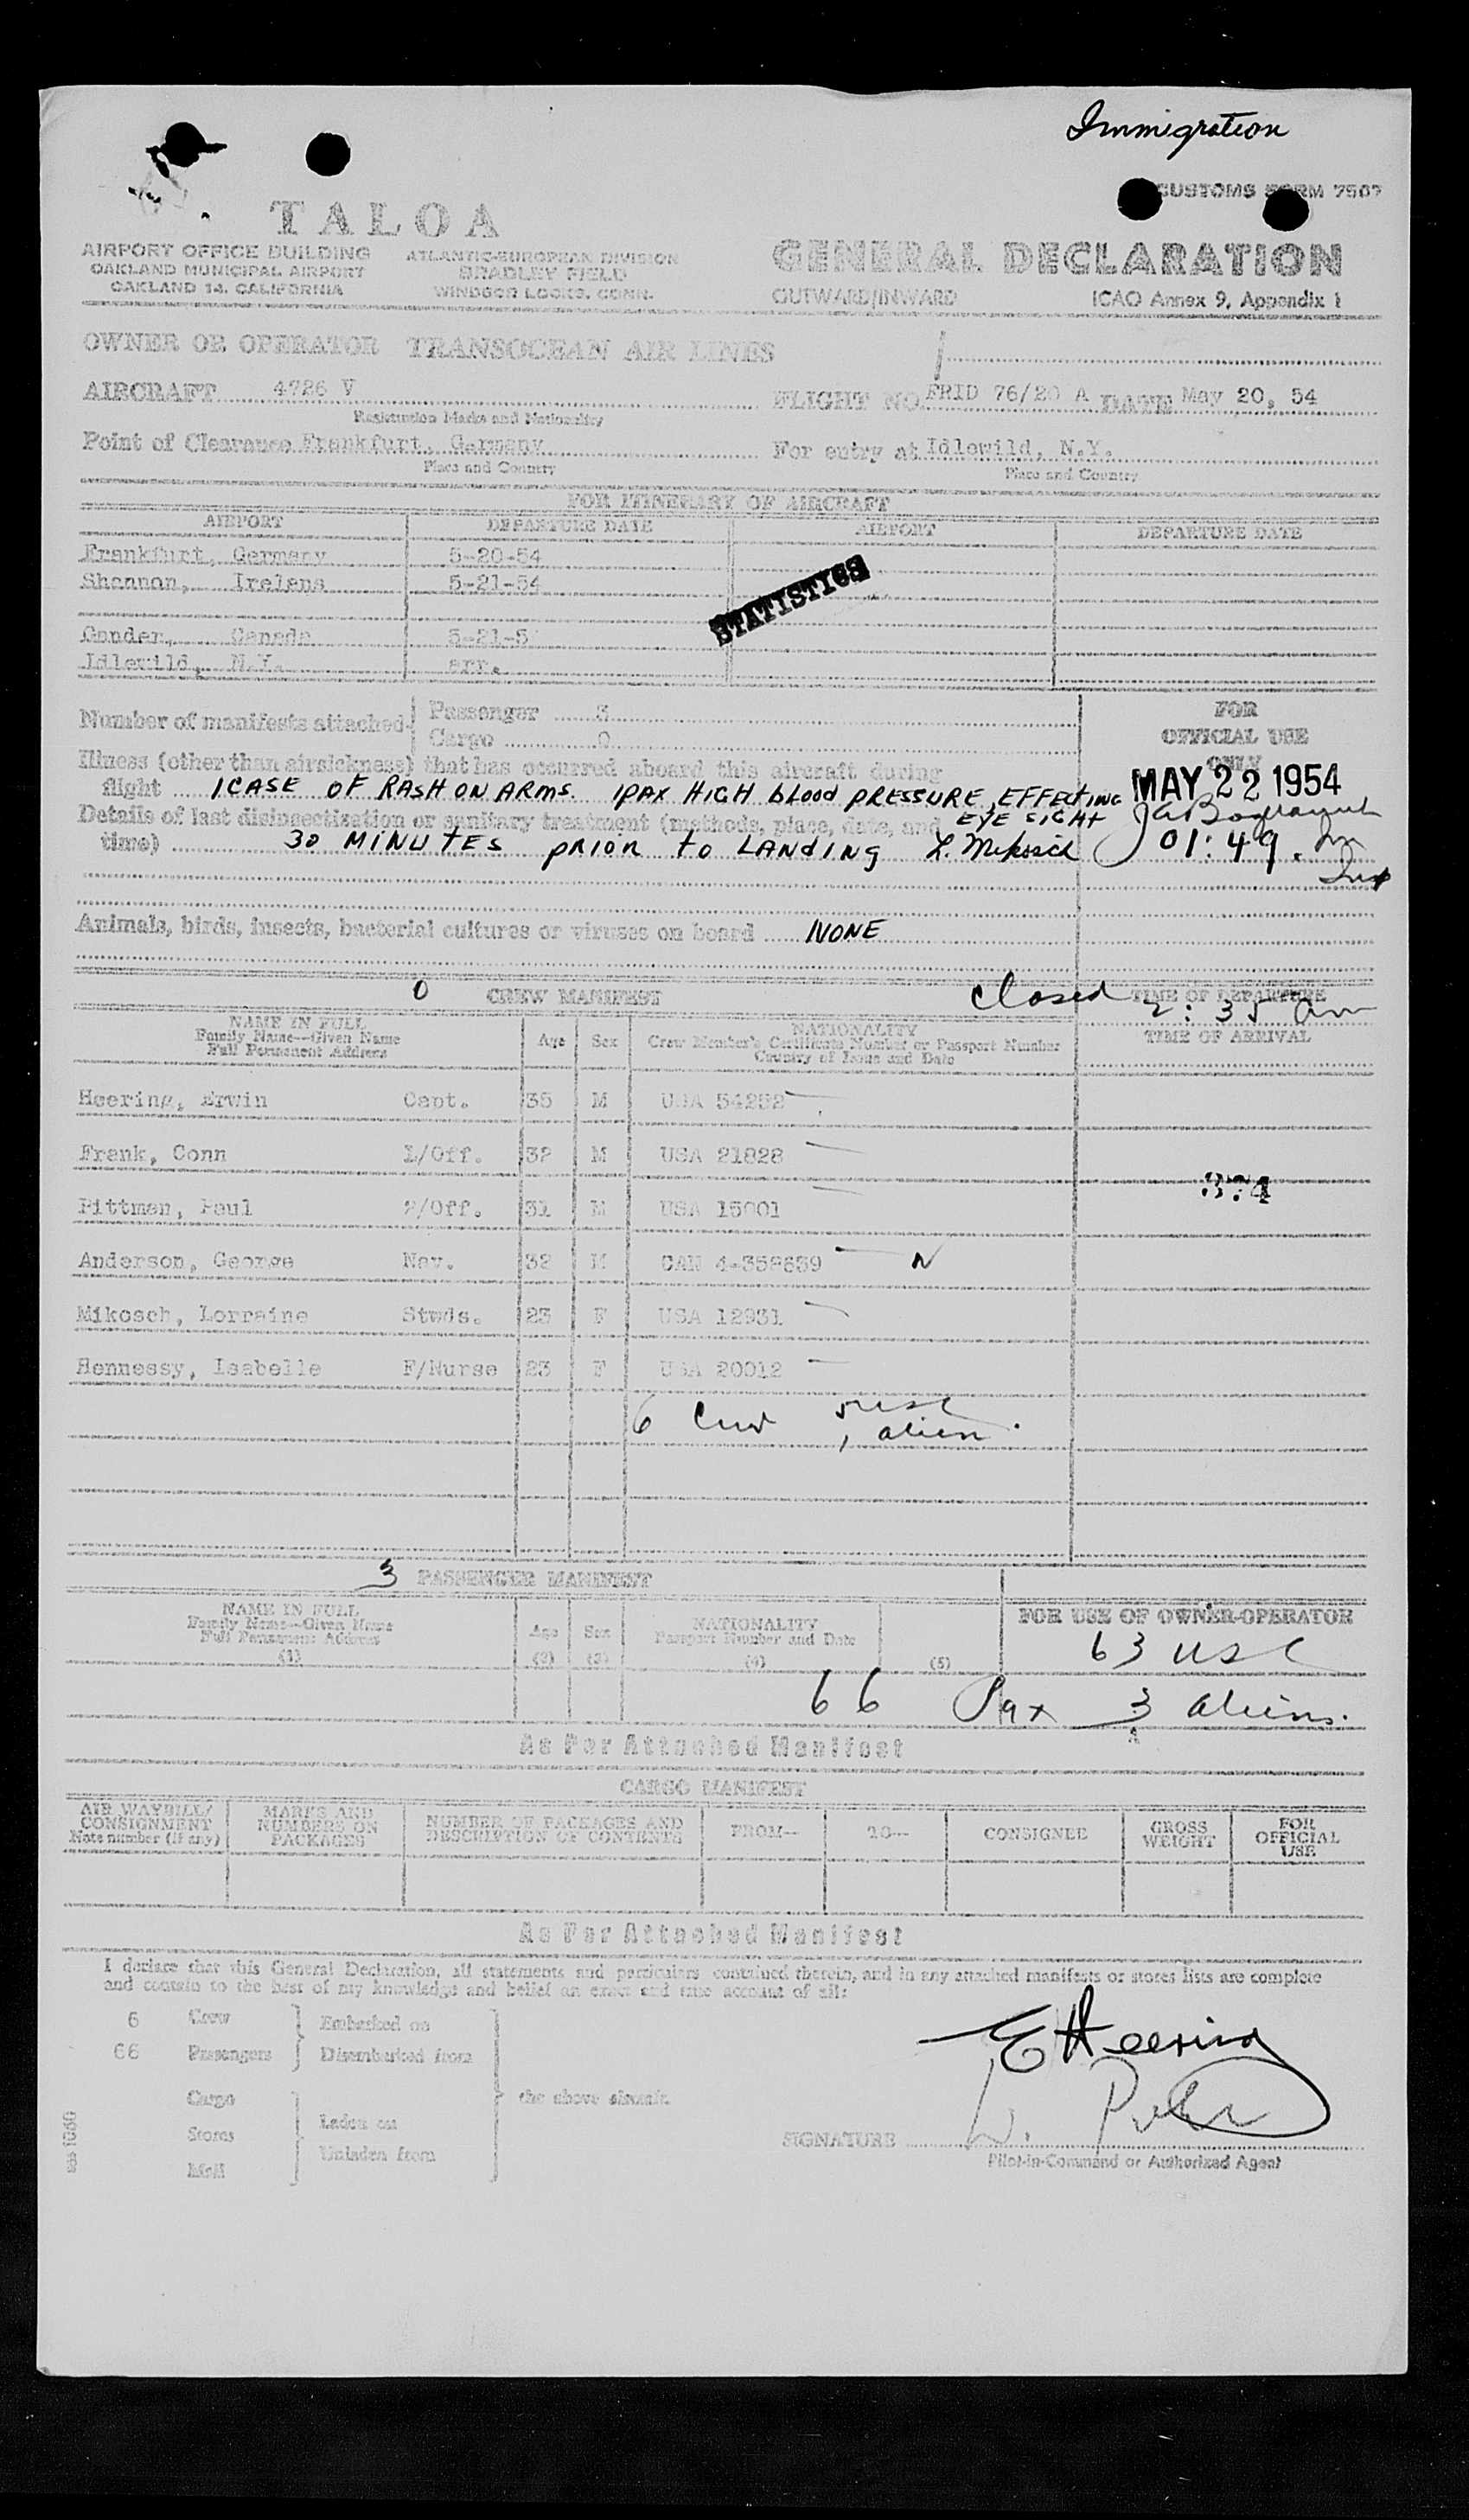 Immigration
CUSTOMS FORM 7507
TALOA
AIRPORT OFFICE BUILDING
OAKLAND MUNICIPAL AIRPORT
OAKLAND 14, CALIFORNIA
ATLANTIC-EUROPEAN DIVISION
BRADLEY FIELD
WINDSOR LOCKS, CONN.
GENERAL DECLARATION
OUTWARD/INWARD ICAO Annex 9, Appendix 1
OWNER OR OPERATOR TRANSOCEAN AIR LINES
AIRCRAFT 4726 V FLIGHT NO. FRID 76/20 A DATE May 20, 54
Registration Marks and Nationality
Point of Clearance Frankfurt, Germany For entry at Idlewild, N.Y.
Place and Country Place and Country
FOR ITINERARY OF AIRCRAFT
AIRPORT DEPARTURE DATE AIRPORT DEPARTURE DATE
Frankfurt, Germany 5-20-54
Shannon, Irelans 5-21-54
STATISTICS
Gander, Canada 5-21-5
Idlewild, N.Y. arr.
Number of manifests attached Passenger 3
Cargo 0
FOR OFFICIAL USE ONLY
Illness (other than airsickness) that has occurred aboard this aircraft during
flight 1 CASE OF RASH ON ARMS. 1 PAX HIGH blood PRESSURE, EFFECTING EYE SIGHT
MAY 22 1954
Details of last disinsectization or sanitary treatment (methods, place, date, and
time) 30 MINUTES PRIOR to LANDING L. Mikosch
01:49
Animals, birds, insects, bacterial cultures or viruses on board NONE
0 CREW MANIFEST
closed 2:35 am
TIME OF DEPARTURE
TIME OF ARRIVAL
NAME IN FULL
Family Name—Given Name
Full Permanent Address
Age Sex
NATIONALITY
Crew Member's Certificate Number or Passport Number
Country of Issue and Date
Heering, Erwin Capt. 35 M USA 54252
Frank, Conn 1/Off. 32 M USA 21828
374
Pittman, Paul 2/Off. 31 M USA 15001
Anderson, George Nav. 32 M CAN 4-358639 N
Mikosch, Lorraine Stwds. 23 F USA 12931
Hennessy, Isabelle F/Nurse 23 F USA 20012
6 Crew 5 usc
1 alien.
3 PASSENGER MANIFEST
NAME IN FULL
Family Name—Given Name
Full Permanent Address
(1)
Age (2) Sex (3)
NATIONALITY
Passport Number and Date
(4) (5)
FOR USE OF OWNER-OPERATOR
63 usc
66 Pax 3 aliens.
As Per Attached Manifest
CARGO MANIFEST
AIR WAYBILL/
CONSIGNMENT
Note number (if any)
MARKS AND
NUMBERS ON
PACKAGES
NUMBER OF PACKAGES AND
DESCRIPTION OF CONTENTS
FROM— TO— CONSIGNEE
GROSS
WEIGHT
FOR
OFFICIAL
USE
As Per Attached Manifest
I declare that this General Declaration, all statements and particulars contained therein, and in any attached manifests or stores lists are complete
and contain to the best of my knowledge and belief an exact and true account of all:
6 Crew Embarked on
66 Passengers Disembarked from
Cargo the above aircraft.
Stores Laden on
Mail Unladen from
E Heering
SIGNATURE
Pilot-in-Command or Authorized Agent